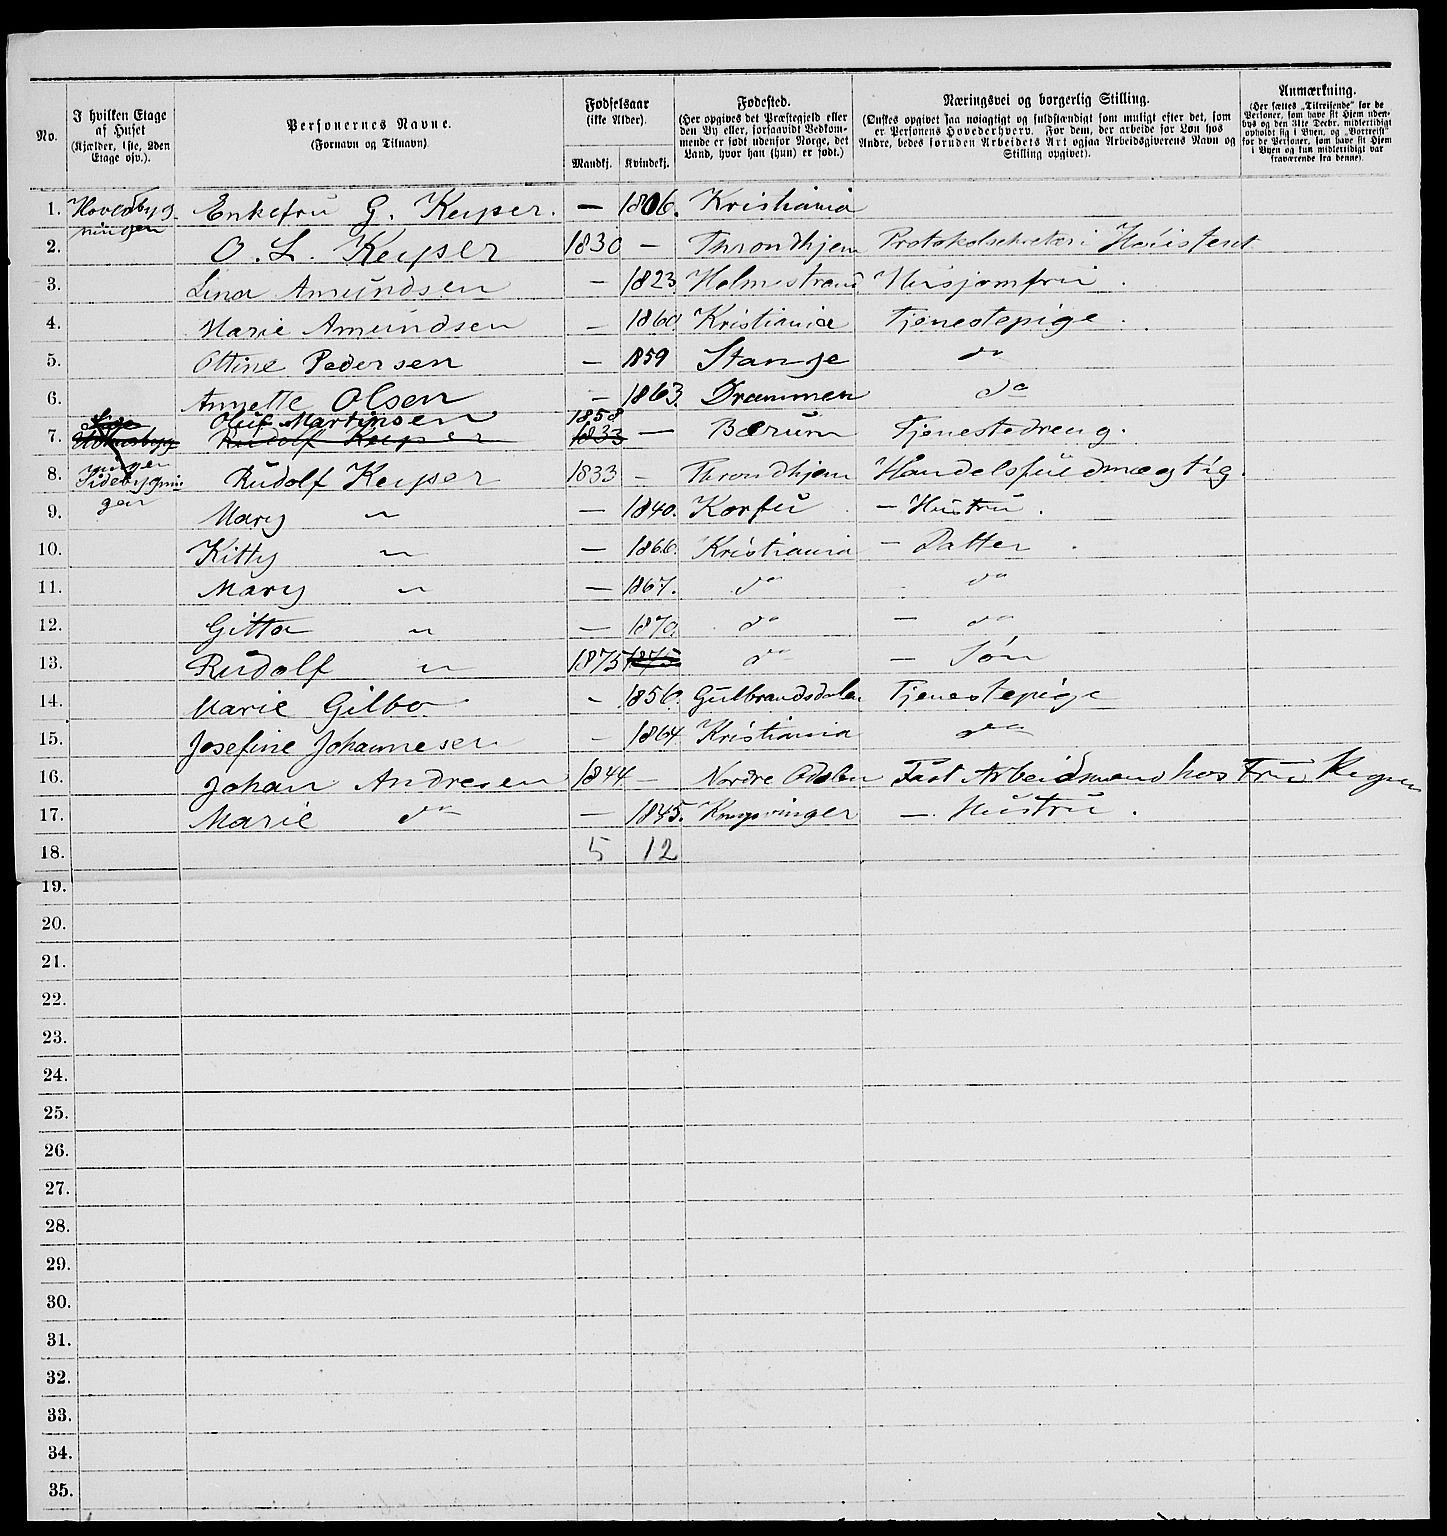 No.
I hvilken Etage af Huset (Kjælder, 1ste, 2den Etage osv.).
Personernes Navne. (Fornavn og Tilnavn)
Fødselsaar (ikke Alder).
Mandkj. Kvindekj.
Fødested. (Her opgives det Præstegjeld eller den By eller, forsaavidt Vedkommende er født udenfor Norge, det Land, hvor han (hun) er født.)
Næringsvei og borgerlig Stilling. (Ønskes opgivet saa nøiagtigt og fuldstændigt som muligt efter det, som er Personens Hovederhverv. For dem, der arbeide for Løn hos Andre, bedes foruden Arbeidets Art ogsaa Arbeidsgiverens Navn og Stilling opgivet).
Anmærkning. (Her sættes „Tilreisende" for de Personer, som have sit Hjem udenbys og den 31te Decbr. midlertidigt opholdt sig i Byen, og „Bortreist" for de Personer, som have sit Hjem i Byen og kun midlertidigt var fraværende fra denne).
1. Hovedbygningen Enkefru G. Keyser. — 1806. Kristiania
2. O. L. Keyser 1830 — Throndhjem Protokolsekretær i Høiesteret
3. Lina Amundsen — 1823. Holmestrand Husjomfru .
4. Marie Amundsen — 1860 Kristiania Tjenestepige .
5. Ottine Pedersen — 1859 Stange do
6. Annette Olsen — 1863. Drammen do
7. Oluf Martinsen 1858 — Bærum Tjenestedreng.
Rudolf Keyser 1833
8. Sidebygningen Rudolf Keyser 1833 — Throndhjem Handelsfuldmægtig.
9. Mary " — 1840. Korfu — Hustru .
10. Kitty " — 1866. Kristiania — Datter .
11. Mary " — 1867. do — do
12. Gitta " — 1870. do — do
13. Rudolf " 1875 1875 do — Søn
14. Marie Gilbo - 1856. Gulbrandsdalen Tjenestepige
15. Josefine Johannesen - 1864 Kristiania do
16. Johan Andresen 1844 — Nordre Odalen Fast Arbeidsmand hos Fru Keyser
17. Marie do — 1845. Kongsvinger — Hustru .
18. 5 12
19.
20.
21.
22.
23.
24.
25.
26.
27.
28.
29.
30.
31.
32.
33.
34.
35.